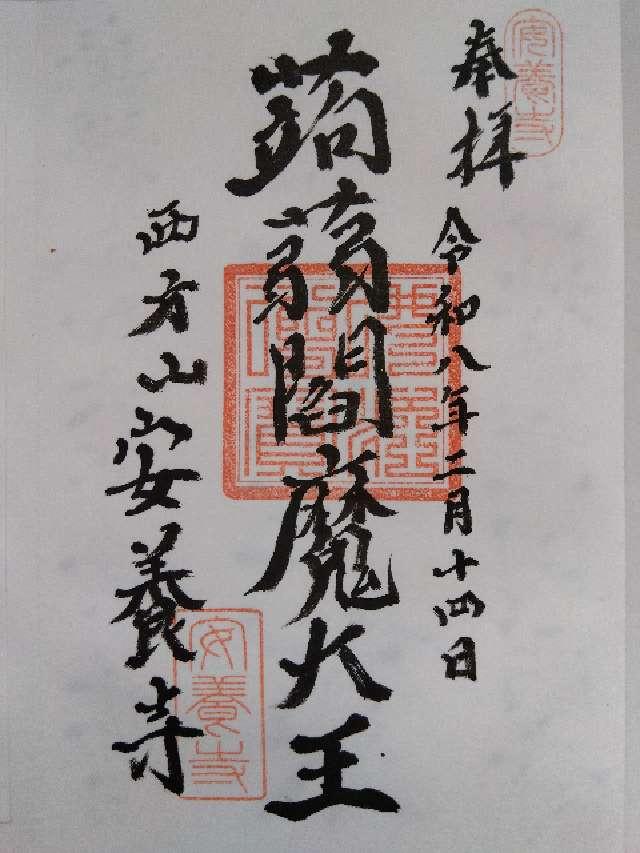 奉拝
令和八年二月十四日
蒟蒻閻魔大王
西方山安養寺
安養寺
安養寺